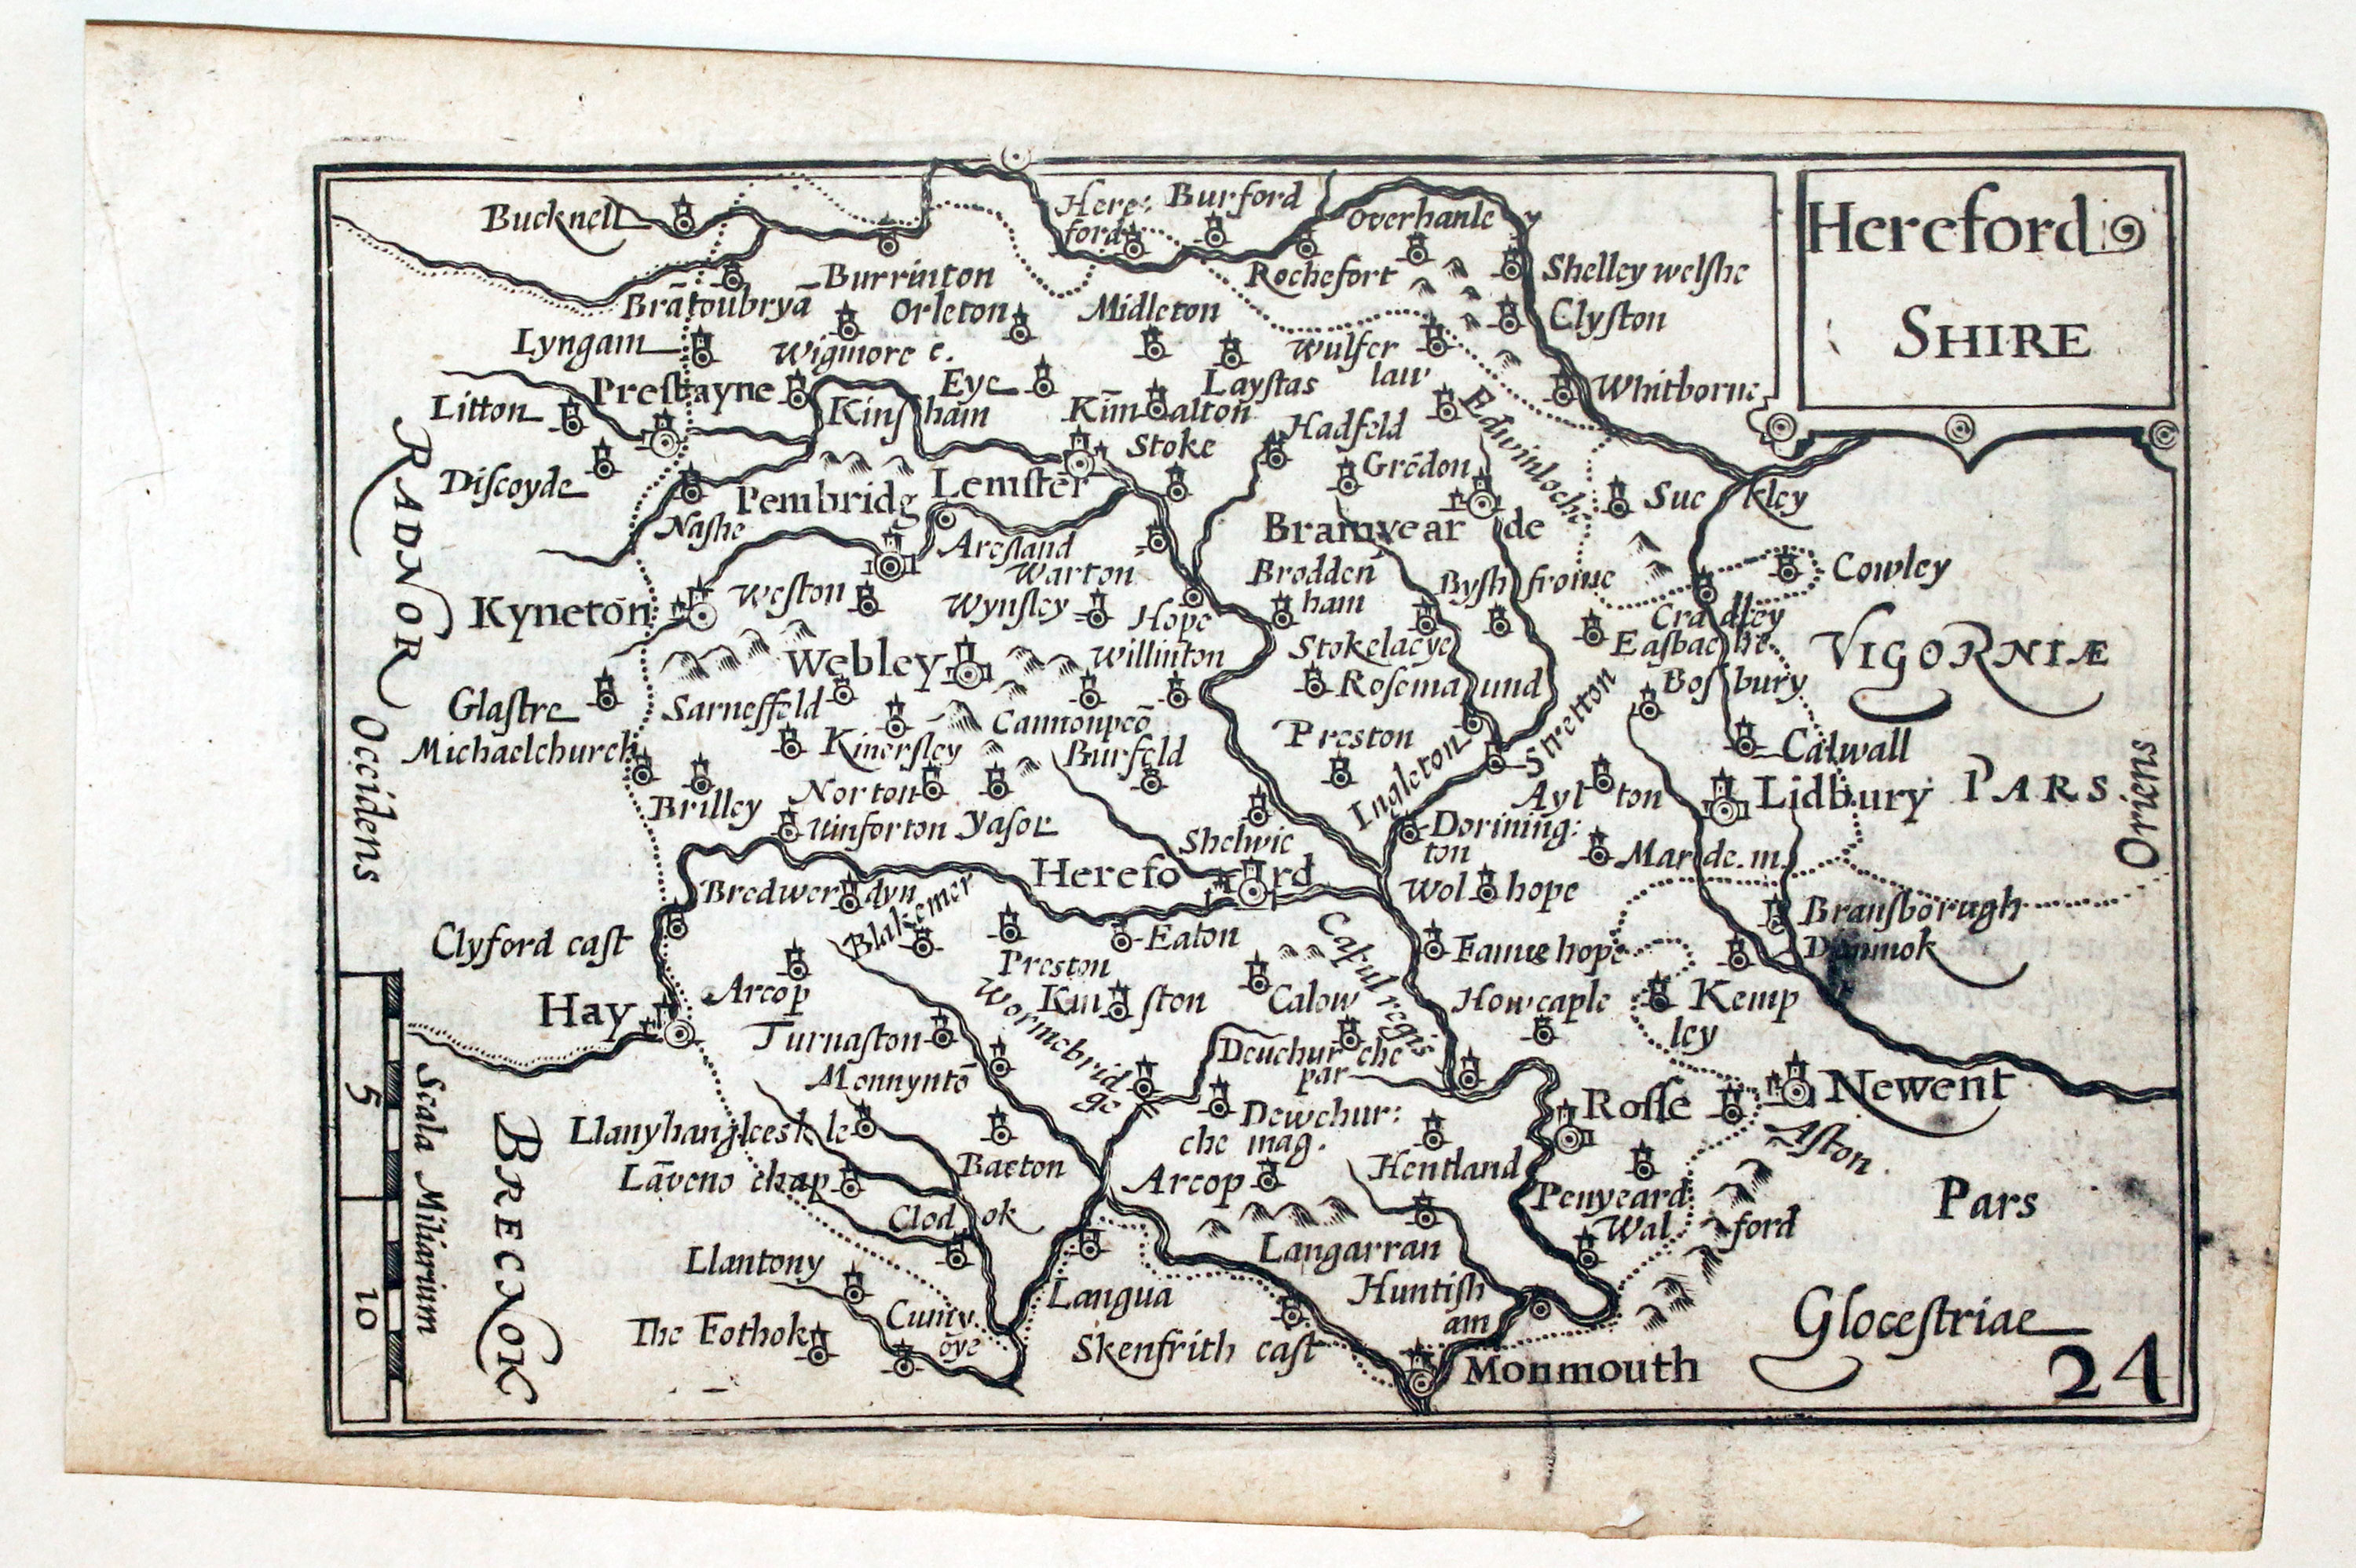 Hereford
SHIRE
Bucknell
Here:
ford
Burford
Overhanle
Burrinton
Rochefort
Shelley welſhe
Brātoubryā
Orleton
Midleton
Clyſton
Lyngam
Wigmore c.
Wulfer
law
Preſtayne
Eye
Layſtas
Whitborne
Litton
Kinſham
Kīmbalton
Edwinloche
Hadfeld
Stoke
Diſcoyde
Pembridg
Lemſter
Grēdon
Suckley
Naſhe
Bramyearde
RADNOR
Areſland
Warton
Brodden
ham
Byſhfrome
Cowley
Kyneton
Weſton
Wynſley
Hope
Cradley
Webley
Willinton
Stokelacye
Eaſbache
VIGORNIÆ
Glaſtre
Sarneſfeld
Roſemaund
Boſbury
Cannonpeō
Michaelchurch
Kinerſley
Burfeld
Preston
Stretton
Calwall
Occidens
Brilley
Norton
Ingleton
Aylton
Lidbury
PARS
Oriens
Uinforton
Yaſor
Shelwic
Dorining:
ton
Marde.m
Hereford
Bredwerdyn
Blakemer
Wolhope
Branſborugh
Clyford caſt
Eaton
Faunehope
Preston
Caleul regis
Arcop
Kinſton
Calow
Howcaple
Kempley
Hay
Wormebridge
Turnaſton
Deuchurche
par
Monnyntō
Roſſe
Newent
Dewchur:
che mag.
Aſton
Scala Miliarium
5
10
BRECNOK
Lāveno chap
Bacton
Arcop
Hentland
Penyeard
Pars
Clodok
Walford
Llantony
Langarran
Langua
Huntiſh
am
Gloceſtriae
The Fothok
Skenfrith caſt
Monmouth
24